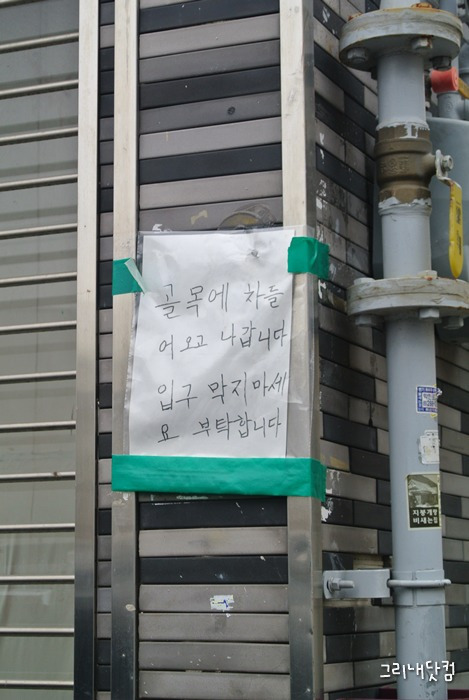 골목에 차들
어오고 나갑니다
입구 막지마세
요 부탁합니다
지붕개량
비새는집
그리내닷컴